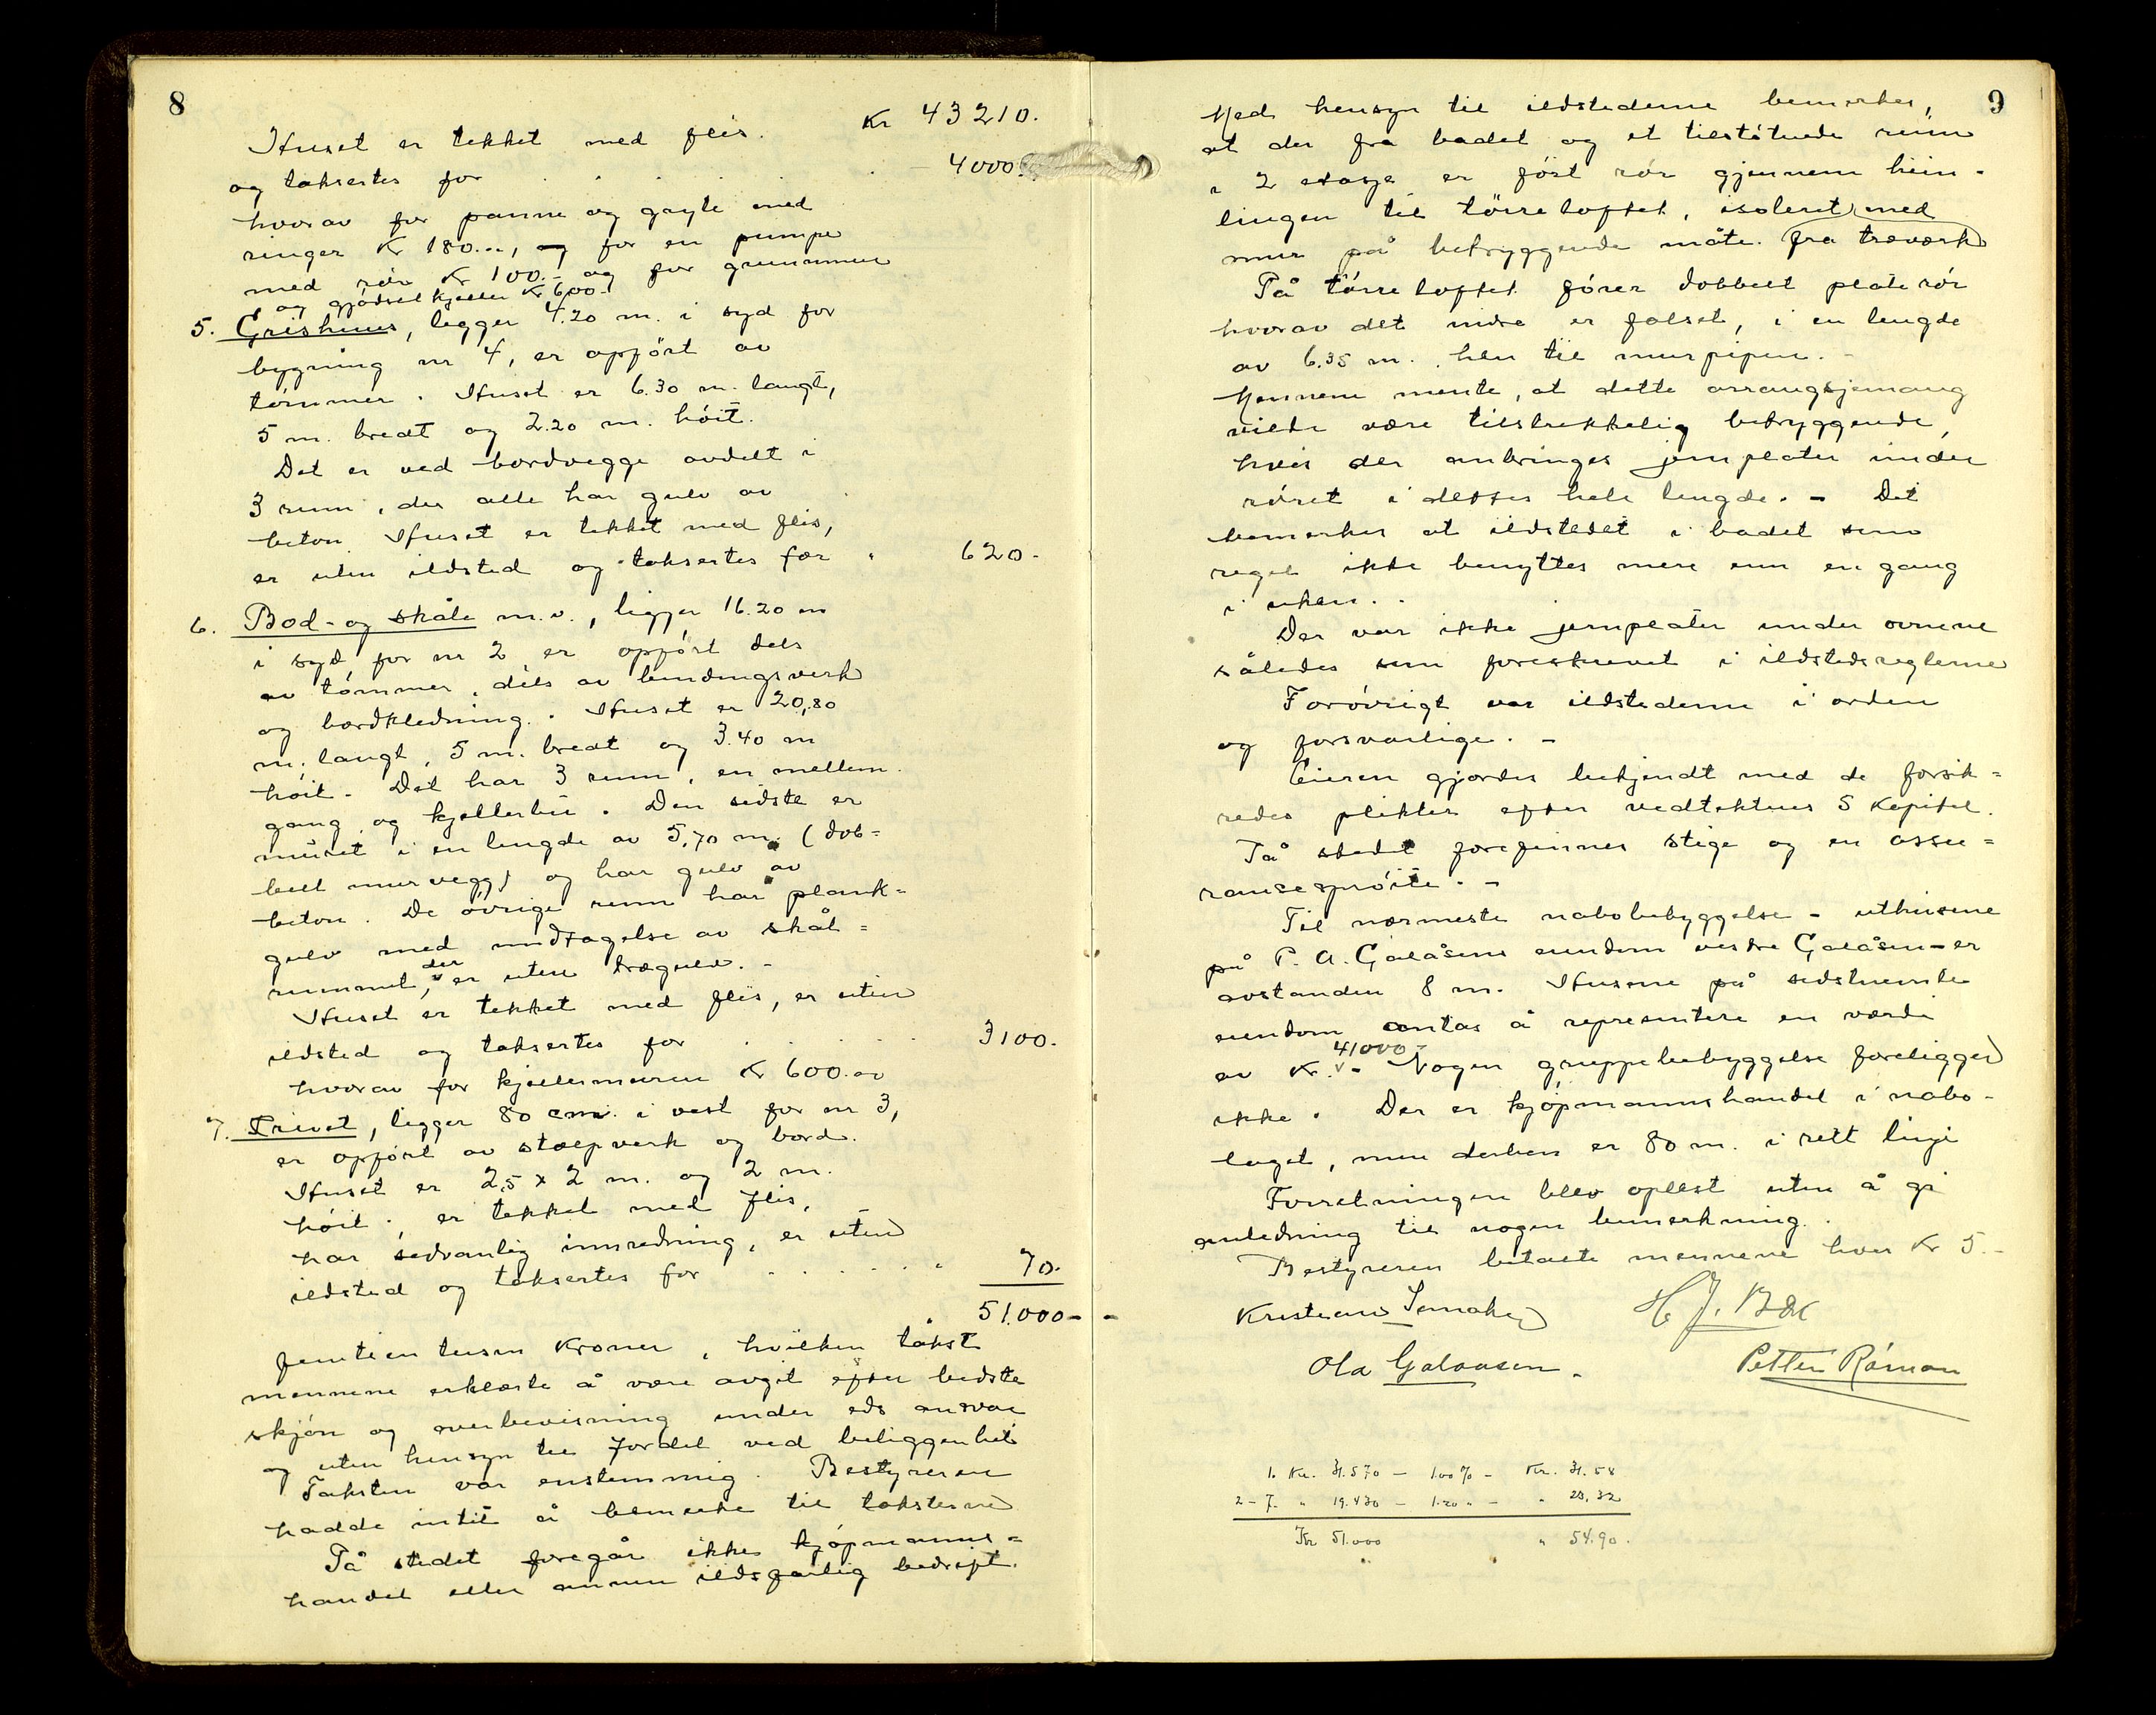 8
Kr 43210.
Huset er tekket med flis.
og taksertes for . . . . . 4000.-
hvorav for panne og gryte med
ringer Kr 180.-, og for en pumpe
med rör Kr 100.- og for grunnmur
og gjödselkjeller Kr 600.-
5. Grishus, ligger 4.20 m. i syd for
bygning nr 4, er opfört av
tömmer. Huset er 6.30 m. langt,
5 m. bredt og 2.20 m. höit.
Det er ved bordvegge avdelt i
3 rum, der alle har gulv av
beton. Huset er tekket med flis,
er uten ildsted og taksertes for . 620.-
6. Bod- og skåle m.v., ligger 16.20 m
i syd for nr 2 er opfört dels
av tömmer, dels av bindingsverk
og bordkledning. Huset er 20,80
m. langt, 5 m. bredt og 3.40 m
höit. Det har 3 rum, en mellem-
gang og kjellerbu. Den sidste er
muret i en lengde av 5,70 m. (dob=
belt murvegg) og har gulv av
beton. De övrige rum har plank=
gulv med undtagelse av skål=
rummet, der er uten trægulv. -
Huset er tekket med flis, er uten
ildsted og taksertes for . . . . . 3100.-
hvorav for kjellermuren Kr 600.00
7. Privet, ligger 80 cm. i vest for nr 3,
er opfört av stolpverk og bord.
Huset er 2,5 x 2 m. og 2 m.
höit, er tekket med flis,
har sedvanlig innredning, er uten
ildsted og taksertes for . . . . . 70.-
51.000.-
femtien tusen kroner, hvilken takst
mennene erklærte å være avgit efter bedste
skjön og overbevisning under eds ansvar
og uten hensyn til fordel ved beliggenhet
Taksten var enstemmig. Bestyreren
hadde intet å bemerke til taksterne
På stedet foregår ikke kjöpmanns=
handel eller annen ildsfarlig bedrift.
9
Med hensyn til ildstederne bemerkes,
at der fra badet og et tilstötende rum
i 2 etasje er fört rör gjennem him-
lingen til törreloftet, isolert med
mur på betryggende måte. fra treverk
På törreloftet förer dobbelt platerör
hvorav det indre er falset, i en lengde
av 6.35 m. hen til murpipen. -
Mennene mente, at dette arrangsjemang
vilde være tilstrekkelig betryggende,
hvis der anbringes jernplater under
röret i dettes hele lengde. - Det
bemerkes at ildstedet i badet som
regel ikke benyttes mere enn en gang
i uken. -
Der var ikke jernplater under ovnene
således som foreskrevet i ildstedsreglerne
Forövrigt var ildstederne i orden
og forsvarlige. -
Eieren gjordes bekjendt med de forsik=
redes plikter efter vedtekternes 5 kapitel.
På stedet forefinnes stige og en assu=
ransespröite. -
Til nærmeste nabobebyggelse - uthusene
på P. A. Galåsens eiendom vestre Galåsen - er
avstanden 8 m. Husene på sidstnevnte
eiendom antas å representere en værdi
av Kr. 41000.- Nogen gruppebebyggelse foreligger
ikke. Der er kjöpmannshandel i nabo-
laget, men derhen er 80 m. i rett linje
Forretningen blev oplest uten å gi
anledning til nogen bemerkning.
Bestyreren betalte mennene hver Kr 5.-
Kristian Semaker H. J. Bæk
Ola Galaasen. Petter Råman
1. Kr. 31.570 - 1.00 % - Kr. 31.58
2-7. " 19.430 - 1.20 " - " 23,32
Kr 51.000 " 54.90.